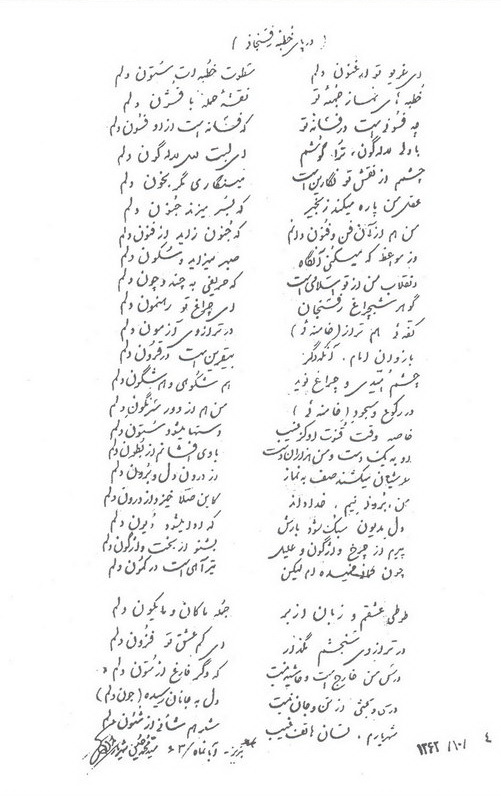 ( در پای خطبه رفسنجانی )
ای غریو تو ارغنون دلم سطوت خطبه ات ستون دلم
خطبه های نماز جمعه تو نقشه حمله با قشون دلم
چه فسونی است در فسانه تو که فسانه است از او فسون دلم
لاله گون، ترا گوشم ای لبت لاله گون دلم
چشم از نقش تو نگارین است مینگاری مگر بخون دلم
عقل من پاره میکند زنجیر که بسر میزند جنون دلم
من هم از آن فن و فنون دانم که جنون زاید از فنون دلم
در مواعظ که میکنی آنگاه صبر میزاید و سکون دلم
انقلاب من از تو اسلامی است که حریفی به چند و چون دلم
گوهر شبچراغ رفسنجان ای چراغ تو رهنمون دلم
کفه ئی هم تراز (خامنه ئی) در ترازوی آزمون دلم
بازوان امام، بیقرین است در قرون دلم
چشم امیدی و چراغ نوید هم شکوهی و هم شگون دلم
در رکوع و سجود (خامنه ئی) من هم از دور سرنگون دلم
خاصه وقت قنوت او کز غیب دستها میشود ستون دلم
او به یک دست و من هزاران دست با وی افشانم از بطون دلم
عرشیان میکشند صف به نماز از درون دل و برون دلم
من، برون نیم، خدا داند کاین صلا خیزد از درون دلم
دل مدیون سبک شود بارش که ادا میشود دیون دلم
پیرم از چرخ واژگون و علیل بشنو از بخت واژگون دلم
چون خمیده ام لیکن تیر آهی است در کمون دلم
طوطی عشقم و زبان از بر جمله ماکان و مایکون دلم
در ترازوی سنجشم مگذار ای کم عشق تو فزون دلم
درس من خارج است و حاشیه نیست که دگر فارغ از متون دلم
درس و بحثی از من و جان نیست دل به جانان رسیده (جون دلم)
شهریارم، لسان هاتف غیب شد هم شأنی از شئون دلم
تبریز- آبانماه/۶۳ سید محمد حسین شهریار
۴ /۱۰/ ۱۳۶۳